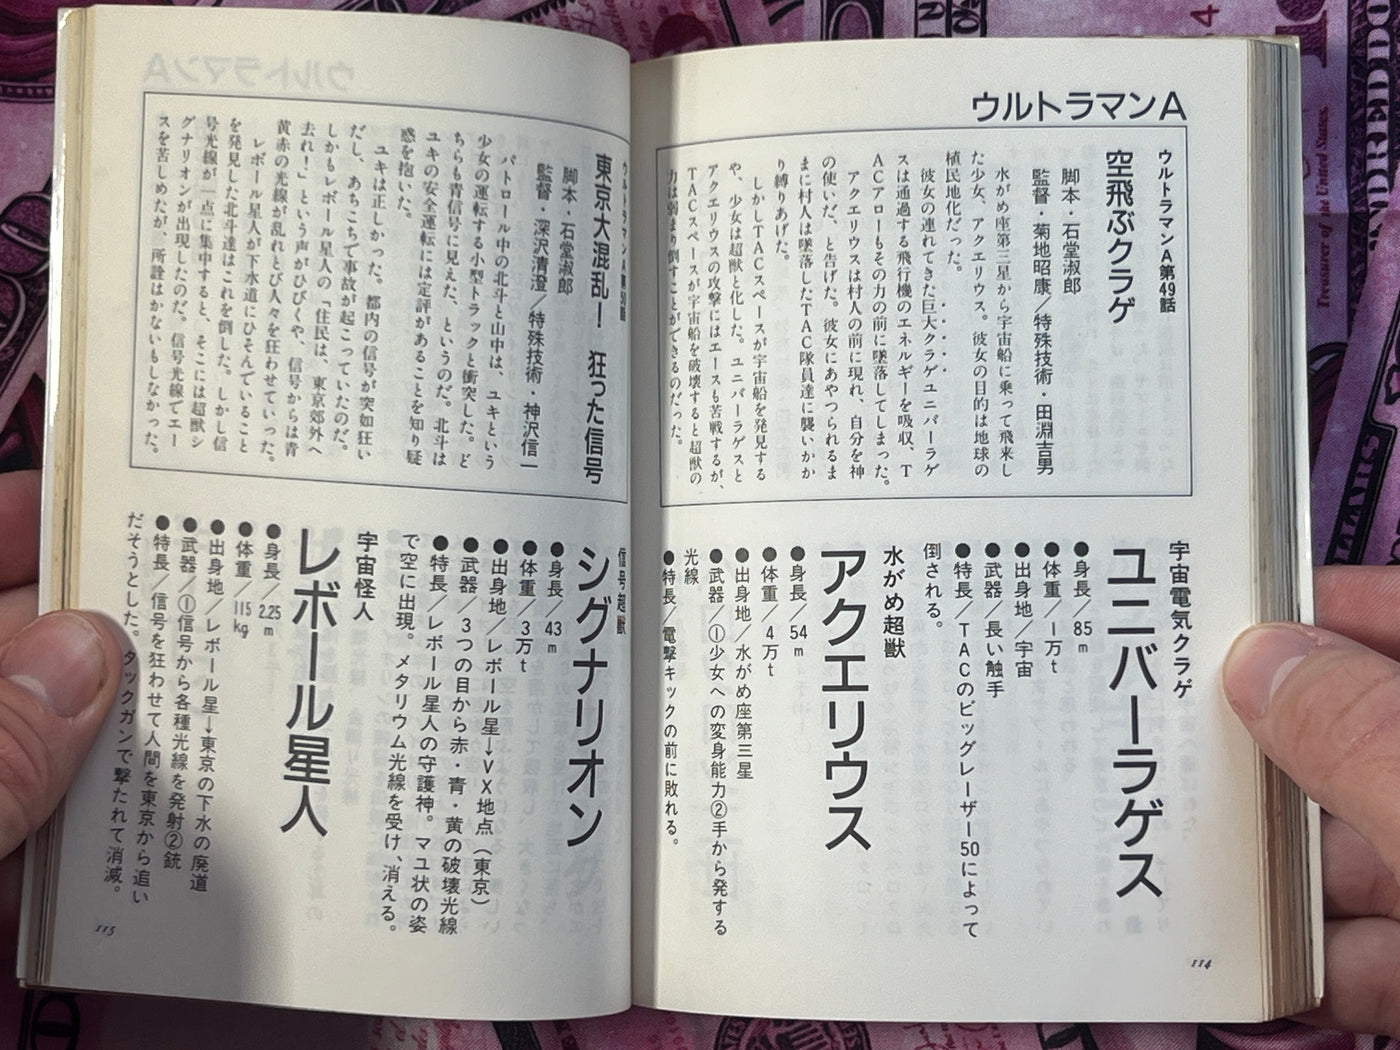 ウルトラマンA
ウルトラマンA第49話
空飛ぶクラゲ
脚本・石堂淑郎
監督・菊地昭康／特殊技術・田淵吉男
水がめ座第三星から宇宙船に乗って飛来し
た少女、アクエリウス。彼女の目的は地球の
植民地化だった。
彼女の連れてきた巨大クラゲユニバーラゲ
スは通過する飛行機のエネルギーを吸収、T
ACアローもその力の前に墜落してしまった。
アクエリウスは村人の前に現れ、自分を神
の使いだ、と告げた。彼女にあやつられるま
まに村人は墜落したTAC隊員達に襲いかか
り縛りあげた。
しかしTACスペースが宇宙船を発見する
や、少女は超獣と化した。ユニバーラゲスと
アクエリウスの攻撃にはエースも苦戦するが、
TACスペースが宇宙船を破壊すると超獣の
力は弱まり倒すことができるのだった。
宇宙電気クラゲ
ユニバーラゲス
●身長／85m
●体重／1万t
●出身地／宇宙
●武器／長い触手
●特長／TACのビッグレーザー50によって
倒される。
水がめ超獣
アクエリウス
●身長／54m
●体重／4万t
●出身地／水がめ座第三星
●武器／①少女への変身能力②手から発する
光線
●特長／電撃キックの前に敗れる。
114
ウルトラマンA第50話
東京大混乱！ 狂った信号
脚本・石堂淑郎
監督・深沢清澄／特殊技術・神沢信一
パトロール中の北斗と山中は、ユキという
少女の運転する小型トラックと衝突した。ど
ちらも青信号に見えた、というのだ。北斗は
ユキの安全運転には定評があることを知り疑
惑を抱いた。
ユキは正しかった。都内の信号が突如狂い
だし、あちこちで事故が起こっていたのだ。
しかもレボール星人の「住民は、東京郊外へ
去れ！」という声がひびくや、信号からは青
黄赤の光線が乱れとび人々を狂わせていった。
レボール星人が下水道にひそんでいること
を発見した北斗達はこれを倒した。しかし信
号光線が一点に集中すると、そこには超獣シ
グナリオンが出現したのだ。信号光線でエー
スを苦しめたが、所詮はかないもしなかった。
信号超獣
シグナリオン
●身長／43m
●体重／3万t
●出身地／レボール星→VX地点（東京）
●武器／3つの目から赤・青・黄の破壊光線
●特長／レボール星人の守護神。マユ状の姿
で空に出現。メタリウム光線を受け、消える。
宇宙怪人
レボール星人
●身長／2.25m
●体重／115kg
●出身地／レボール星→東京の下水の廃道
●武器／①信号から各種光線を発射②銃
●特長／信号を狂わせて人間を東京から追い
だそうとした。タックガンで撃たれて消滅。
115